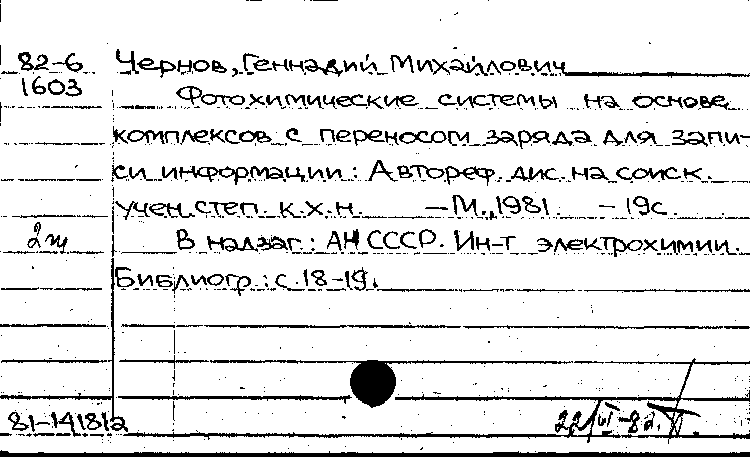 82-6 Чернов, Геннадий Михайлович
1603 Фотохимические системы на основе
комплексов с переносом заряда для запи-
си информации: Автореф. дис. на соиск.
учен. степ. к.х.н. — М., 1981. - 19с.
2т В надзаг.: АН СССР. Ин-т электрохимии.
Библиогр.: с. 18-19.
81-14181а